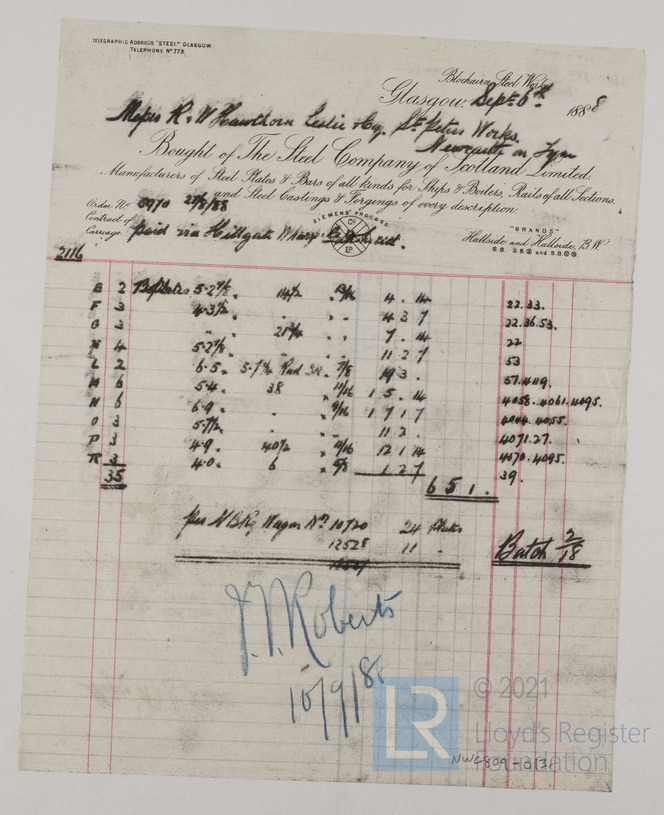 TELEGRAPHIC ADDRESS "STEEL" GLASGOW.
TELEPHONE Nº 773.
Blochairn Steel Works
Glasgow: Sept 6th 1888
Messrs R & W Hawthorn Leslie & Co. St Peters Works.
Newcastle on Tyne
Bought of The Steel Company of Scotland Limited.
Manufacturers of Steel Plates & Bars of all kinds for Ships & Boilers, Rails of all Sections,
and Steel Castings & Forgings of every description.
Order No 5970 27/8/88
Contract of
Carriage paid via Hillgate Wharf
SIEMENS' PROCESS
"BRANDS"
Hallside and Hallside, B.W
2116
E 2 5.2 14½ 4 . 14 22.33.
F 3 4.3½ 4 3 7 22.36.53.
G 3 7 . 14 22
4 5.2 11 2 7 53
L 2 6.5 7/8 19 3 . 57.4119.
M 6 5.4 38 11/16 1 5 . 14 4058.4061.4095.
N 6 6.9 9/16 1 7 1 7 4044.4055.
O 3 5.7½ 11 2 . 4071.27.
P 3 4.9 40½ 11/16 12 1 14 4070.4095.
R 3 4.0 6 5/8 1 2 7 39.
35
6 5 1 .
per N B Ry Wagon Nº 10720 24 Plates
12528 11 "
Batch 2/18
J.T. Roberts
10/9/88
LR © 2021
Lloyd's Register
Foundation
NWC809-0131